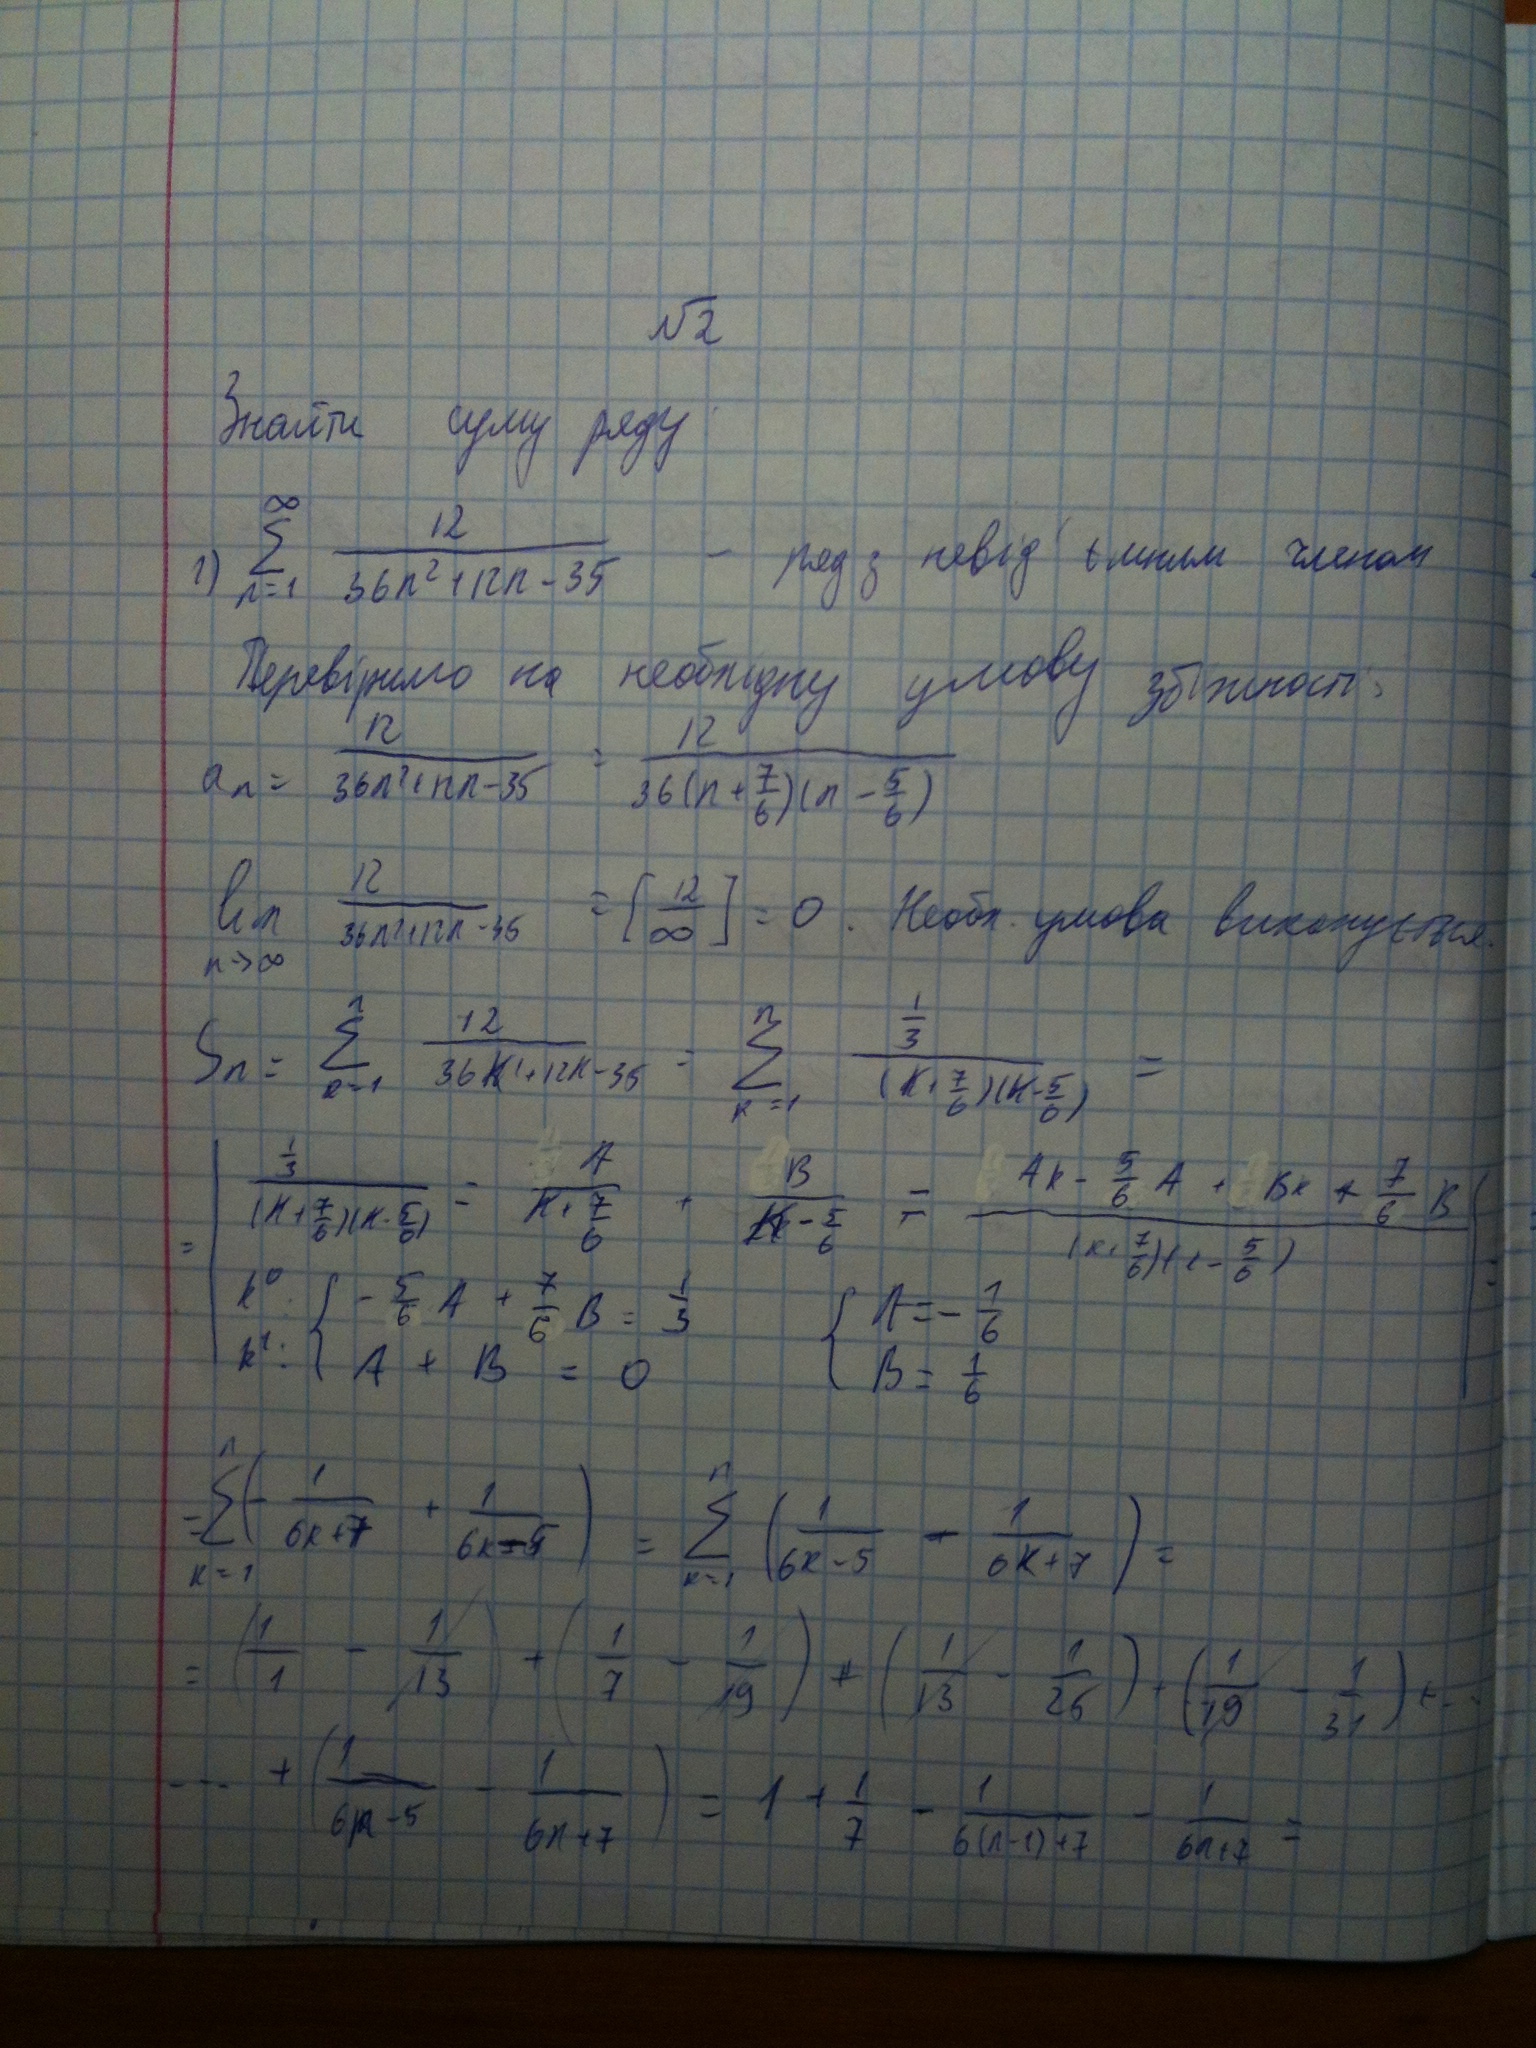 №2
Знайти суму ряду:
1) ∑_{n=1}^{∞} 12/(36n²+12n-35) - ряд з невід'ємним членом
Перевіримо на необхідну умову збіжності:
a_n = 12/(36n²+12n-35) = 12/(36(n+7/6)(n-5/6))
lim_{n→∞} 12/(36n²+12n-35) = [12/∞] = 0. Необх. умова виконується.
S_n = ∑_{k=1}^{n} 12/(36k²+12k-35) = ∑_{k=1}^{n} (1/3)/((k+7/6)(k-5/6)) =
= | (1/3)/((k+7/6)(k-5/6)) = A/(k+7/6) + B/(k-5/6) = (Ak - 5/6 A + Bk + 7/6 B)/((k+7/6)(k-5/6)) | =
k⁰: { -5/6 A + 7/6 B = 1/3 { A = -1/6
k¹: { A + B = 0 { B = 1/6
= ∑_{k=1}^{n} (-1/(6k+7) + 1/(6k-5)) = ∑_{k=1}^{n} (1/(6k-5) - 1/(6k+7)) =
= (1/1 - 1/13) + (1/7 - 1/19) + (1/13 - 1/25) + (1/19 - 1/31) + ...
... + (1/(6n-5) - 1/(6n+7)) = 1 + 1/7 - 1/(6(n-1)+7) - 1/(6n+7) =